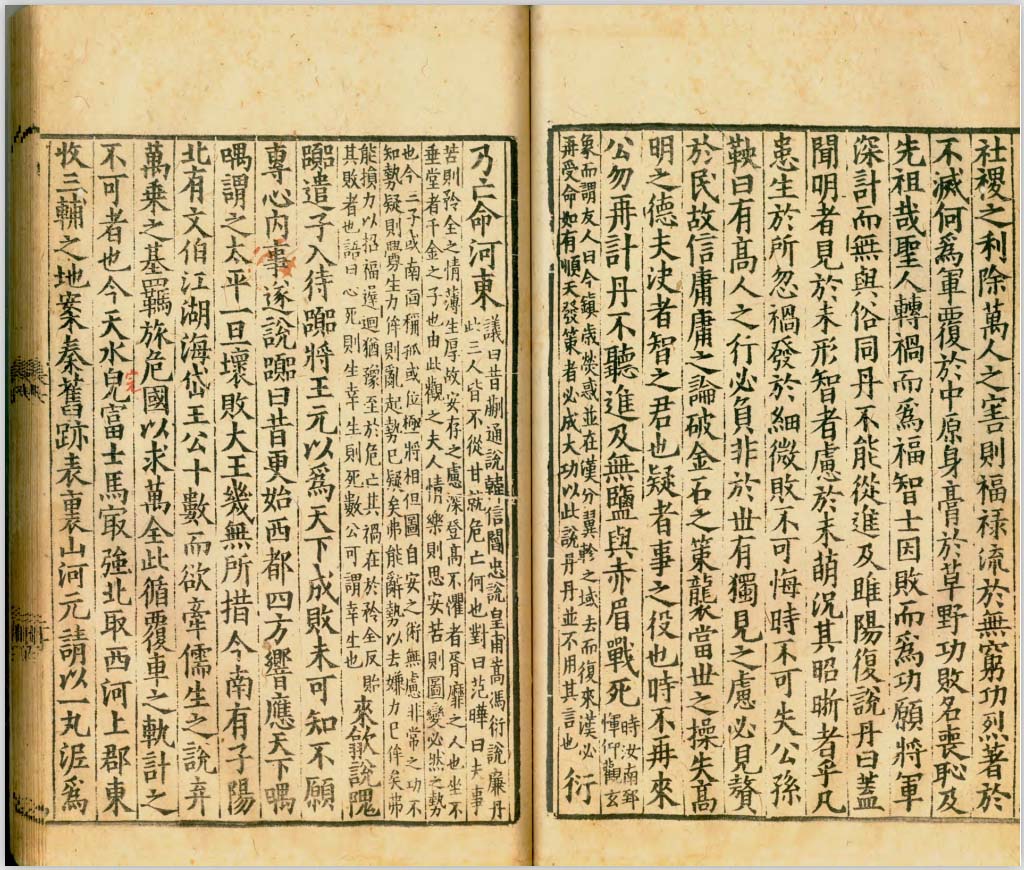 社稷之利除萬人之害則福禄流於無窮功烈著於
不滅何爲軍覆於中原身膏於草野功敗名喪恥及
先祖哉聖人轉禍而爲福智士因敗而爲功願將軍
深計而無與俗同丹不能從進及睢陽復說丹曰蓋
聞明者見於未形智者慮於未萌況其昭晰者乎凡
患生於所忽禍發於細微敗不可悔時不可失公孫
鞅曰有髙人之行必負非於世有獨見之慮必見贅
於民故信庸庸之論破金石之策襲當世之操失髙
明之德夫决者智之君也疑者事之役也時不再來
公勿再計丹不聽進及無鹽與赤眉戰死
時汝南郅
惲仰觀玄
衍
象而謂友人曰今鎮歲熒惑並在漢分翼軫之域去而復來漢必
再受命如有順天發策者必成大功以此說丹丹並不用其言也
乃亡命河東
議曰昔蒯通說韓信閻忠說皇甫嵩馮衍說廉丹
此三人皆不從甘就危亡何也對曰范曄曰夫事
苦則矜全之情薄生厚故安存之慮深登髙不懼者胥靡之人也坐不
垂堂者千金之子也由此觀之夫人情樂則思安苦則圖變必然之勢
也今二子或南面稱孤或位極將相但圖自安之術無慮非常之功不
知勢疑則舋生力侔則亂起勢已疑矣弗能辭勢以去嫌力已侔矣弗
能損力以招福遲迴猶豫至於危亡其禍在於矜全反貽
其敗者也語曰心死則生幸生則死數公可謂幸生也
來歙說隗
囂遣子入待囂將王元以爲天下成敗未可知不願
專心内事遂說囂曰昔更始西都四方響應天下喁
喁謂之太平一旦壞敗大王幾無所措今南有子陽
北有文伯江湖海岱王公十數而欲牽儒生之說弃
萬乘之基羈旅危國以求萬全此循覆車之軌計之
不可者也今天水皃富士馬㝡強北取西河上郡東
收三輔之地案秦舊跡表裏山河元請以一丸泥爲